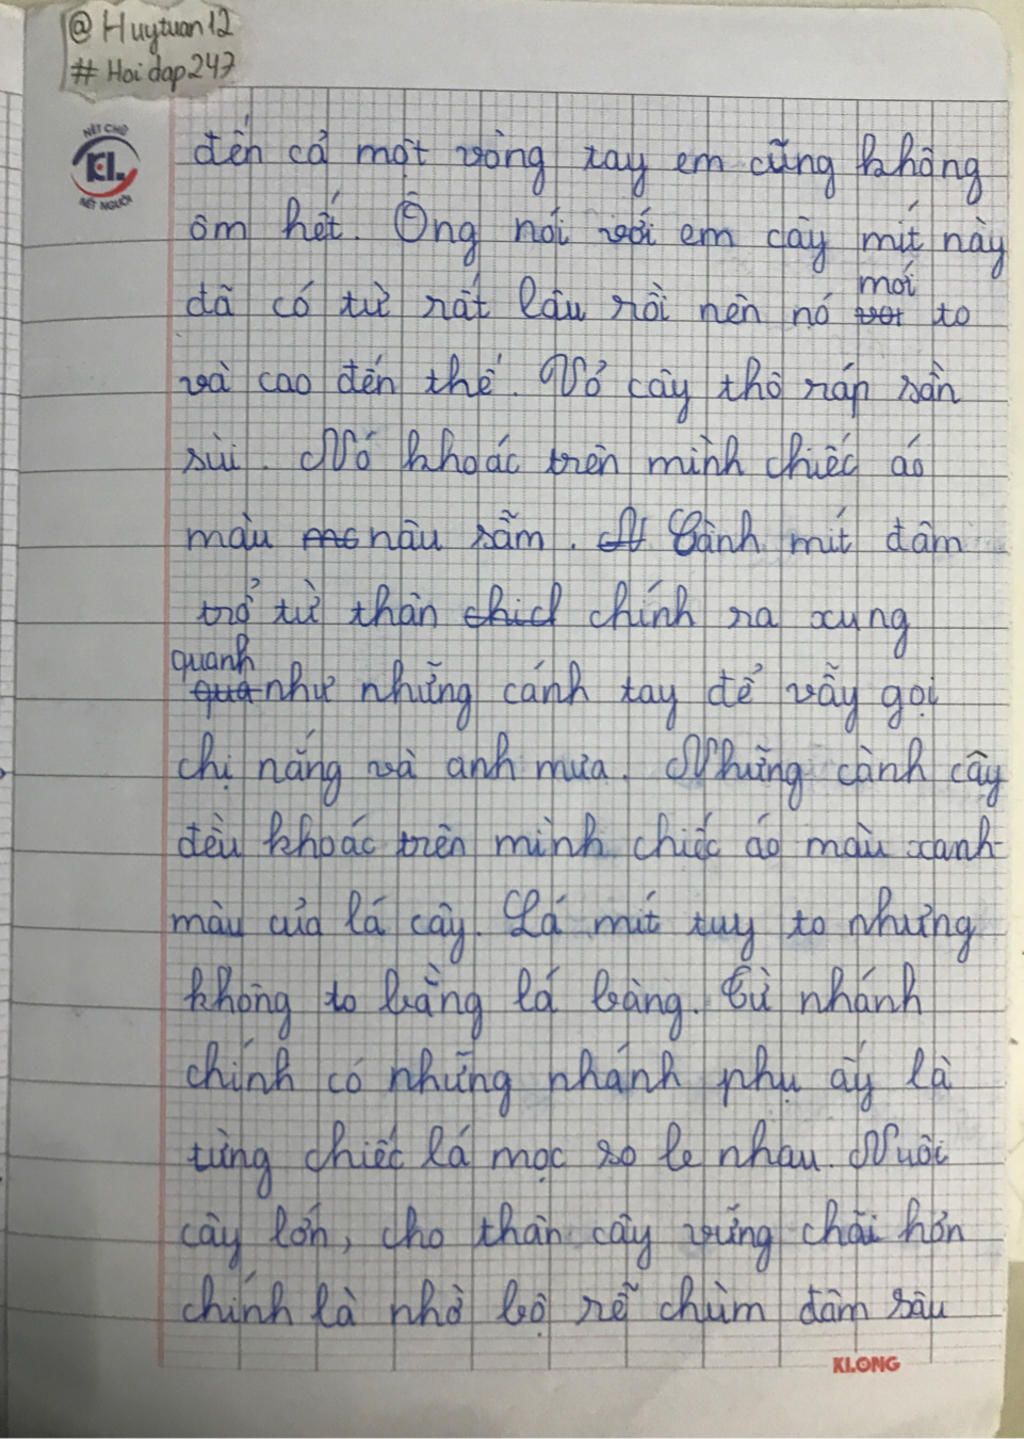 @Huytuan12
#Hoidap247
NÉT CHỮ
KL.
NẾT NGƯỜI
đến cả một vòng tay em cũng không
ôm hết. Ông nói với em cây mít này
mới
đã có từ rất lâu rồi nên nó vơi to
và cao đến thế. Vỏ cây thô ráp sần
sùi. Nó khoác trên mình chiếc áo
màu mc nâu sẫm. Cành mít đâm
trổ từ thân chicl chính ra xung
quanh
qua như những cánh tay để vẫy gọi
chị nắng và anh mưa. Những cành cây
đều khoác trên mình chiếc áo màu xanh
màu của lá cây. Lá mít tuy to nhưng
không to bằng lá bàng. Từ nhánh
chính có những nhánh phụ ấy là
từng chiếc lá mọc so le nhau. Nuôi
cây lớn, cho thân cây vững chãi hơn
chính là nhờ bộ rễ chùm đâm sâu
KLONG